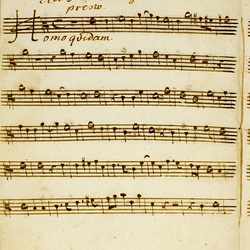 presto.
Homo quidam.